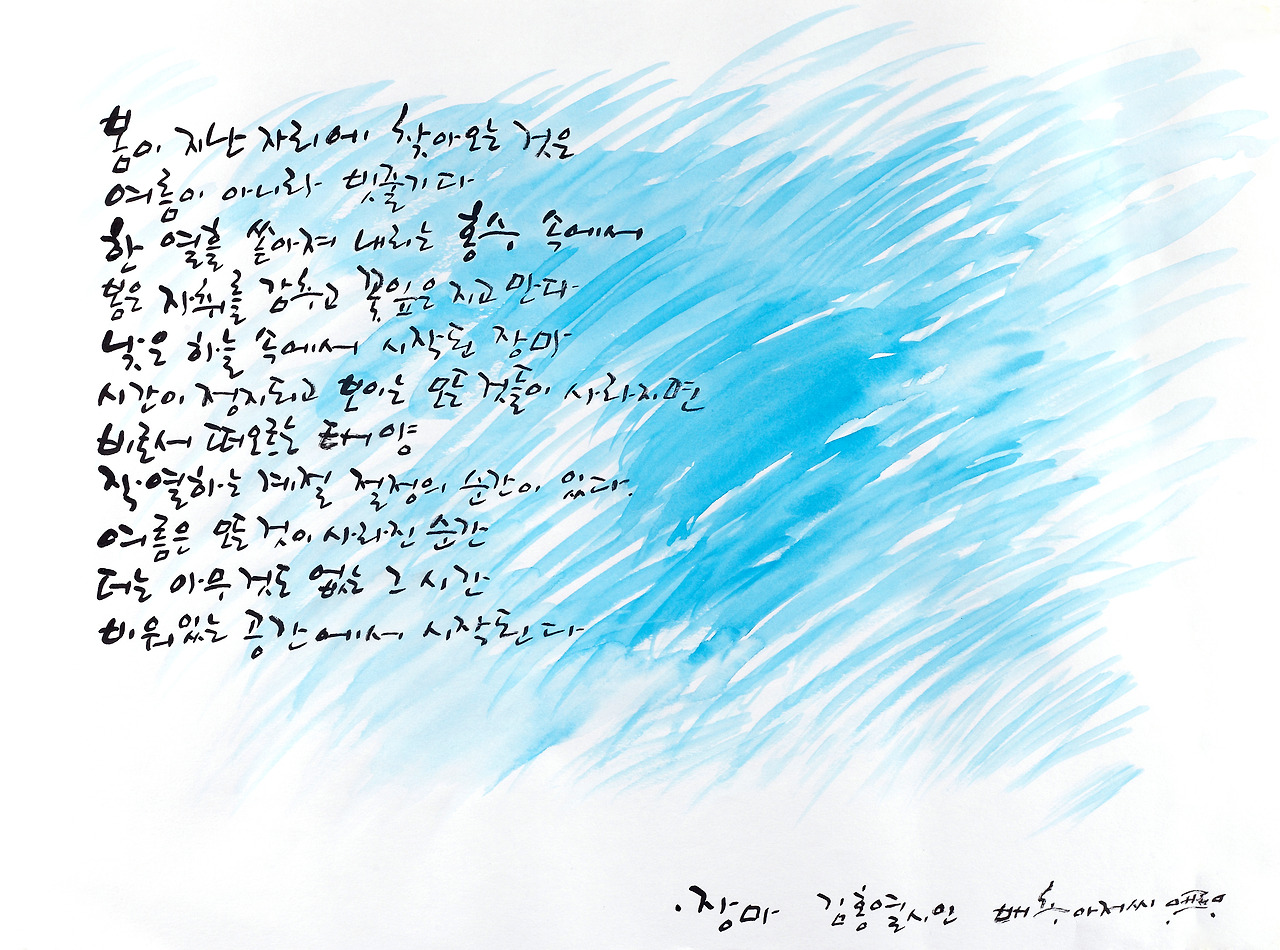 봄이 지난 자리에 찾아오는 것은
여름이 아니라 빗줄기다
한 열흘 쏟아져 내리는 홍수 속에서
봄은 자취를 감추고 꽃잎은 지고 만다
낮은 하늘 속에서 시작된 장마
시간이 정지되고 보이는 모든 것들이 사라지면
비로서 떠오르는 태양
작·열하는 계절 절정의 순간이 있다.
여름은 모든 것이 사라진 순간
더는 아무것도 없는 그 시간
비워있는 공간에서 시작된다
·장마 김홍열시인 배추아저씨